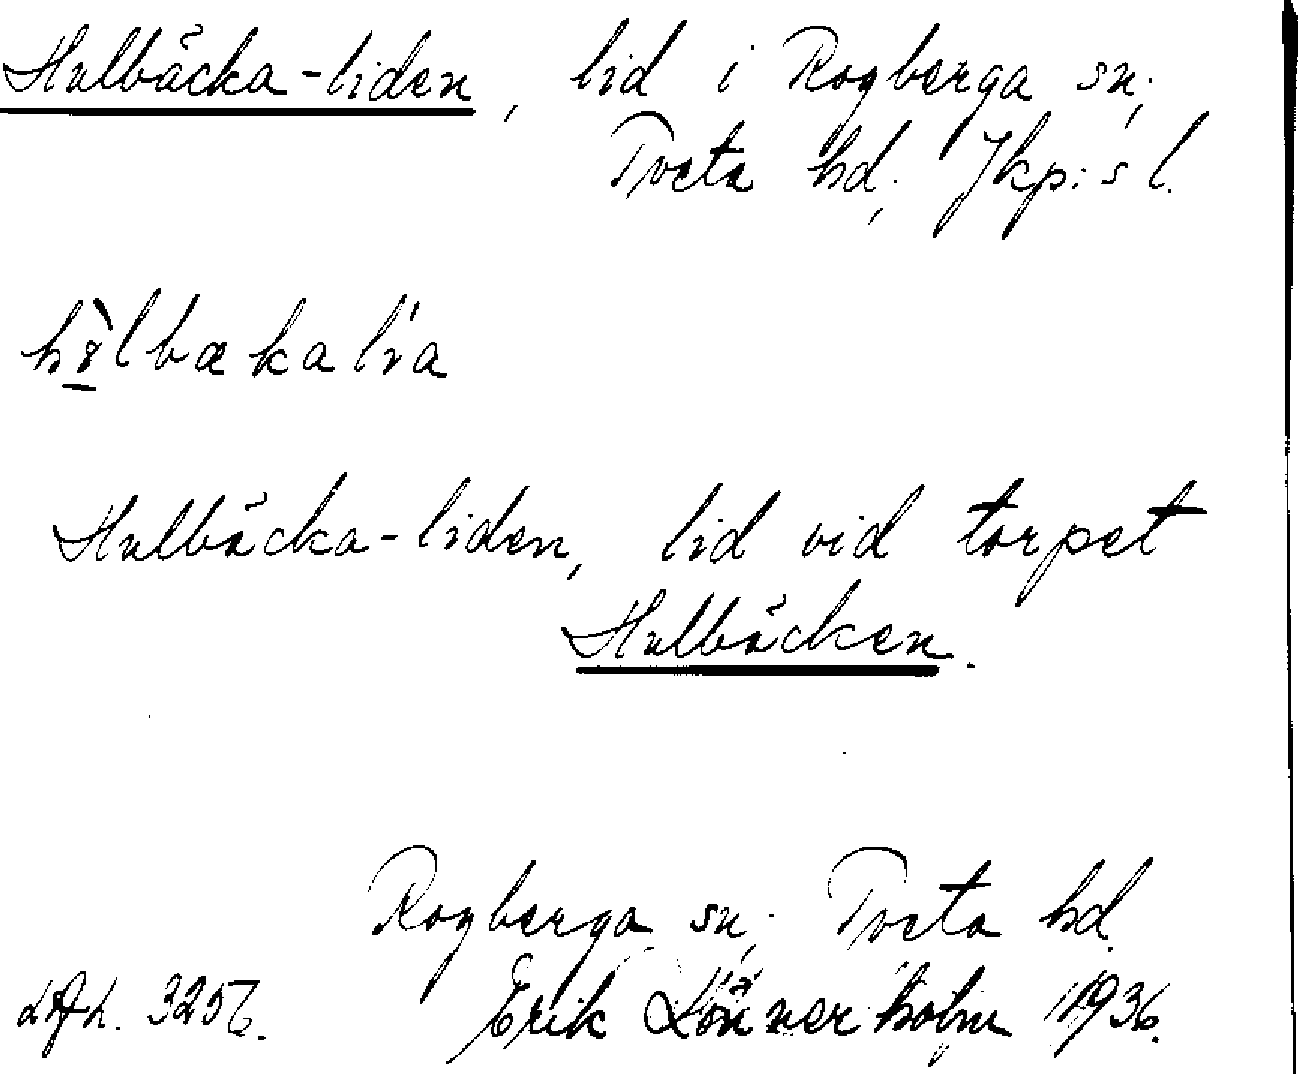 Hulbäcka-liden, lid i Rogberga sn;
Tveta hd; Jkp:s l.
hɤ̀lbækalía
Hulbäcka-liden, lid vid torpet
Hulbäcken.
Rogberga sn; Tveta hd.
3256. Erik Lönnerholm 1936.